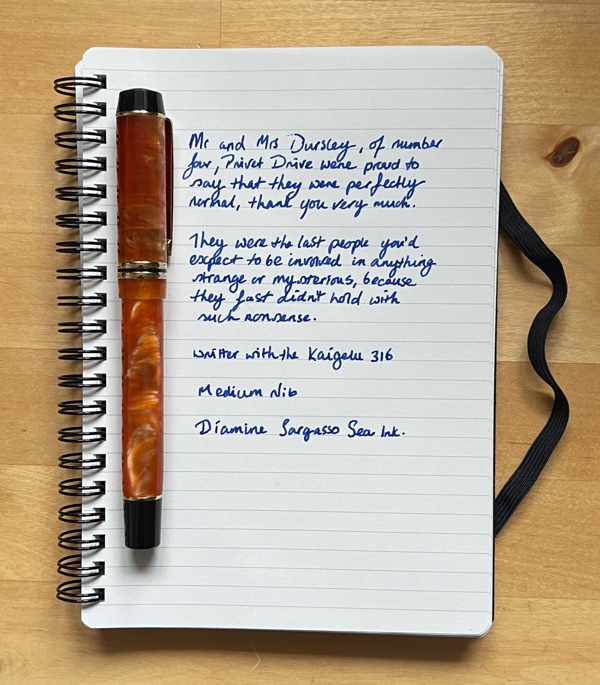 Mr and Mrs Dursley, of number
four, Privet Drive were proud to
say that they were perfectly
normal, thank you very much.
They were the last people you'd
expect to be involved in anything
strange or mysterious, because
they just didn't hold with
such nonsense.
written with the Kaigelu 316
Medium Nib
Diamine Sargasso Sea Ink.